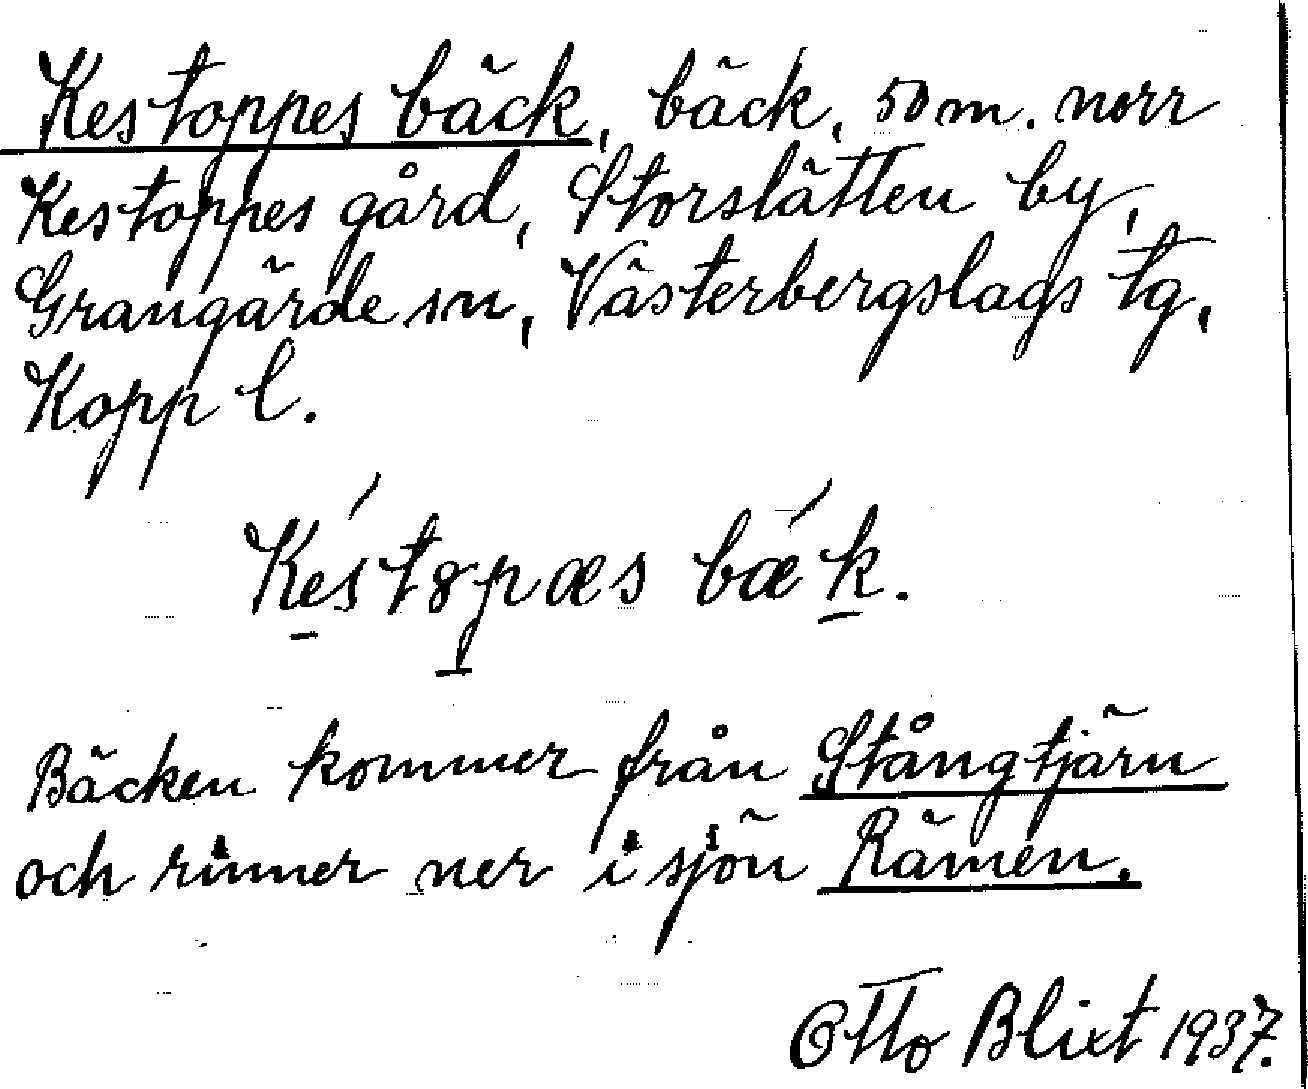 Kestoppes bäck, bäck, 50 m. norr
Kestoppes gård, Storslätten by,
Grangärde sn, Västerbergslags tg,
Kopp l.
Késtȣpæs bǽk.
Bäcken kommer från Stångtjärn
och rinner ner i sjön Rämen.
Otto Blixt 1937.